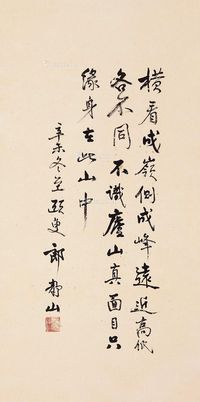 橫看成嶺側成峰遠近高低
各不同不識廬山真面目只
緣身在此山中
辛未冬至頤叟郎靜山